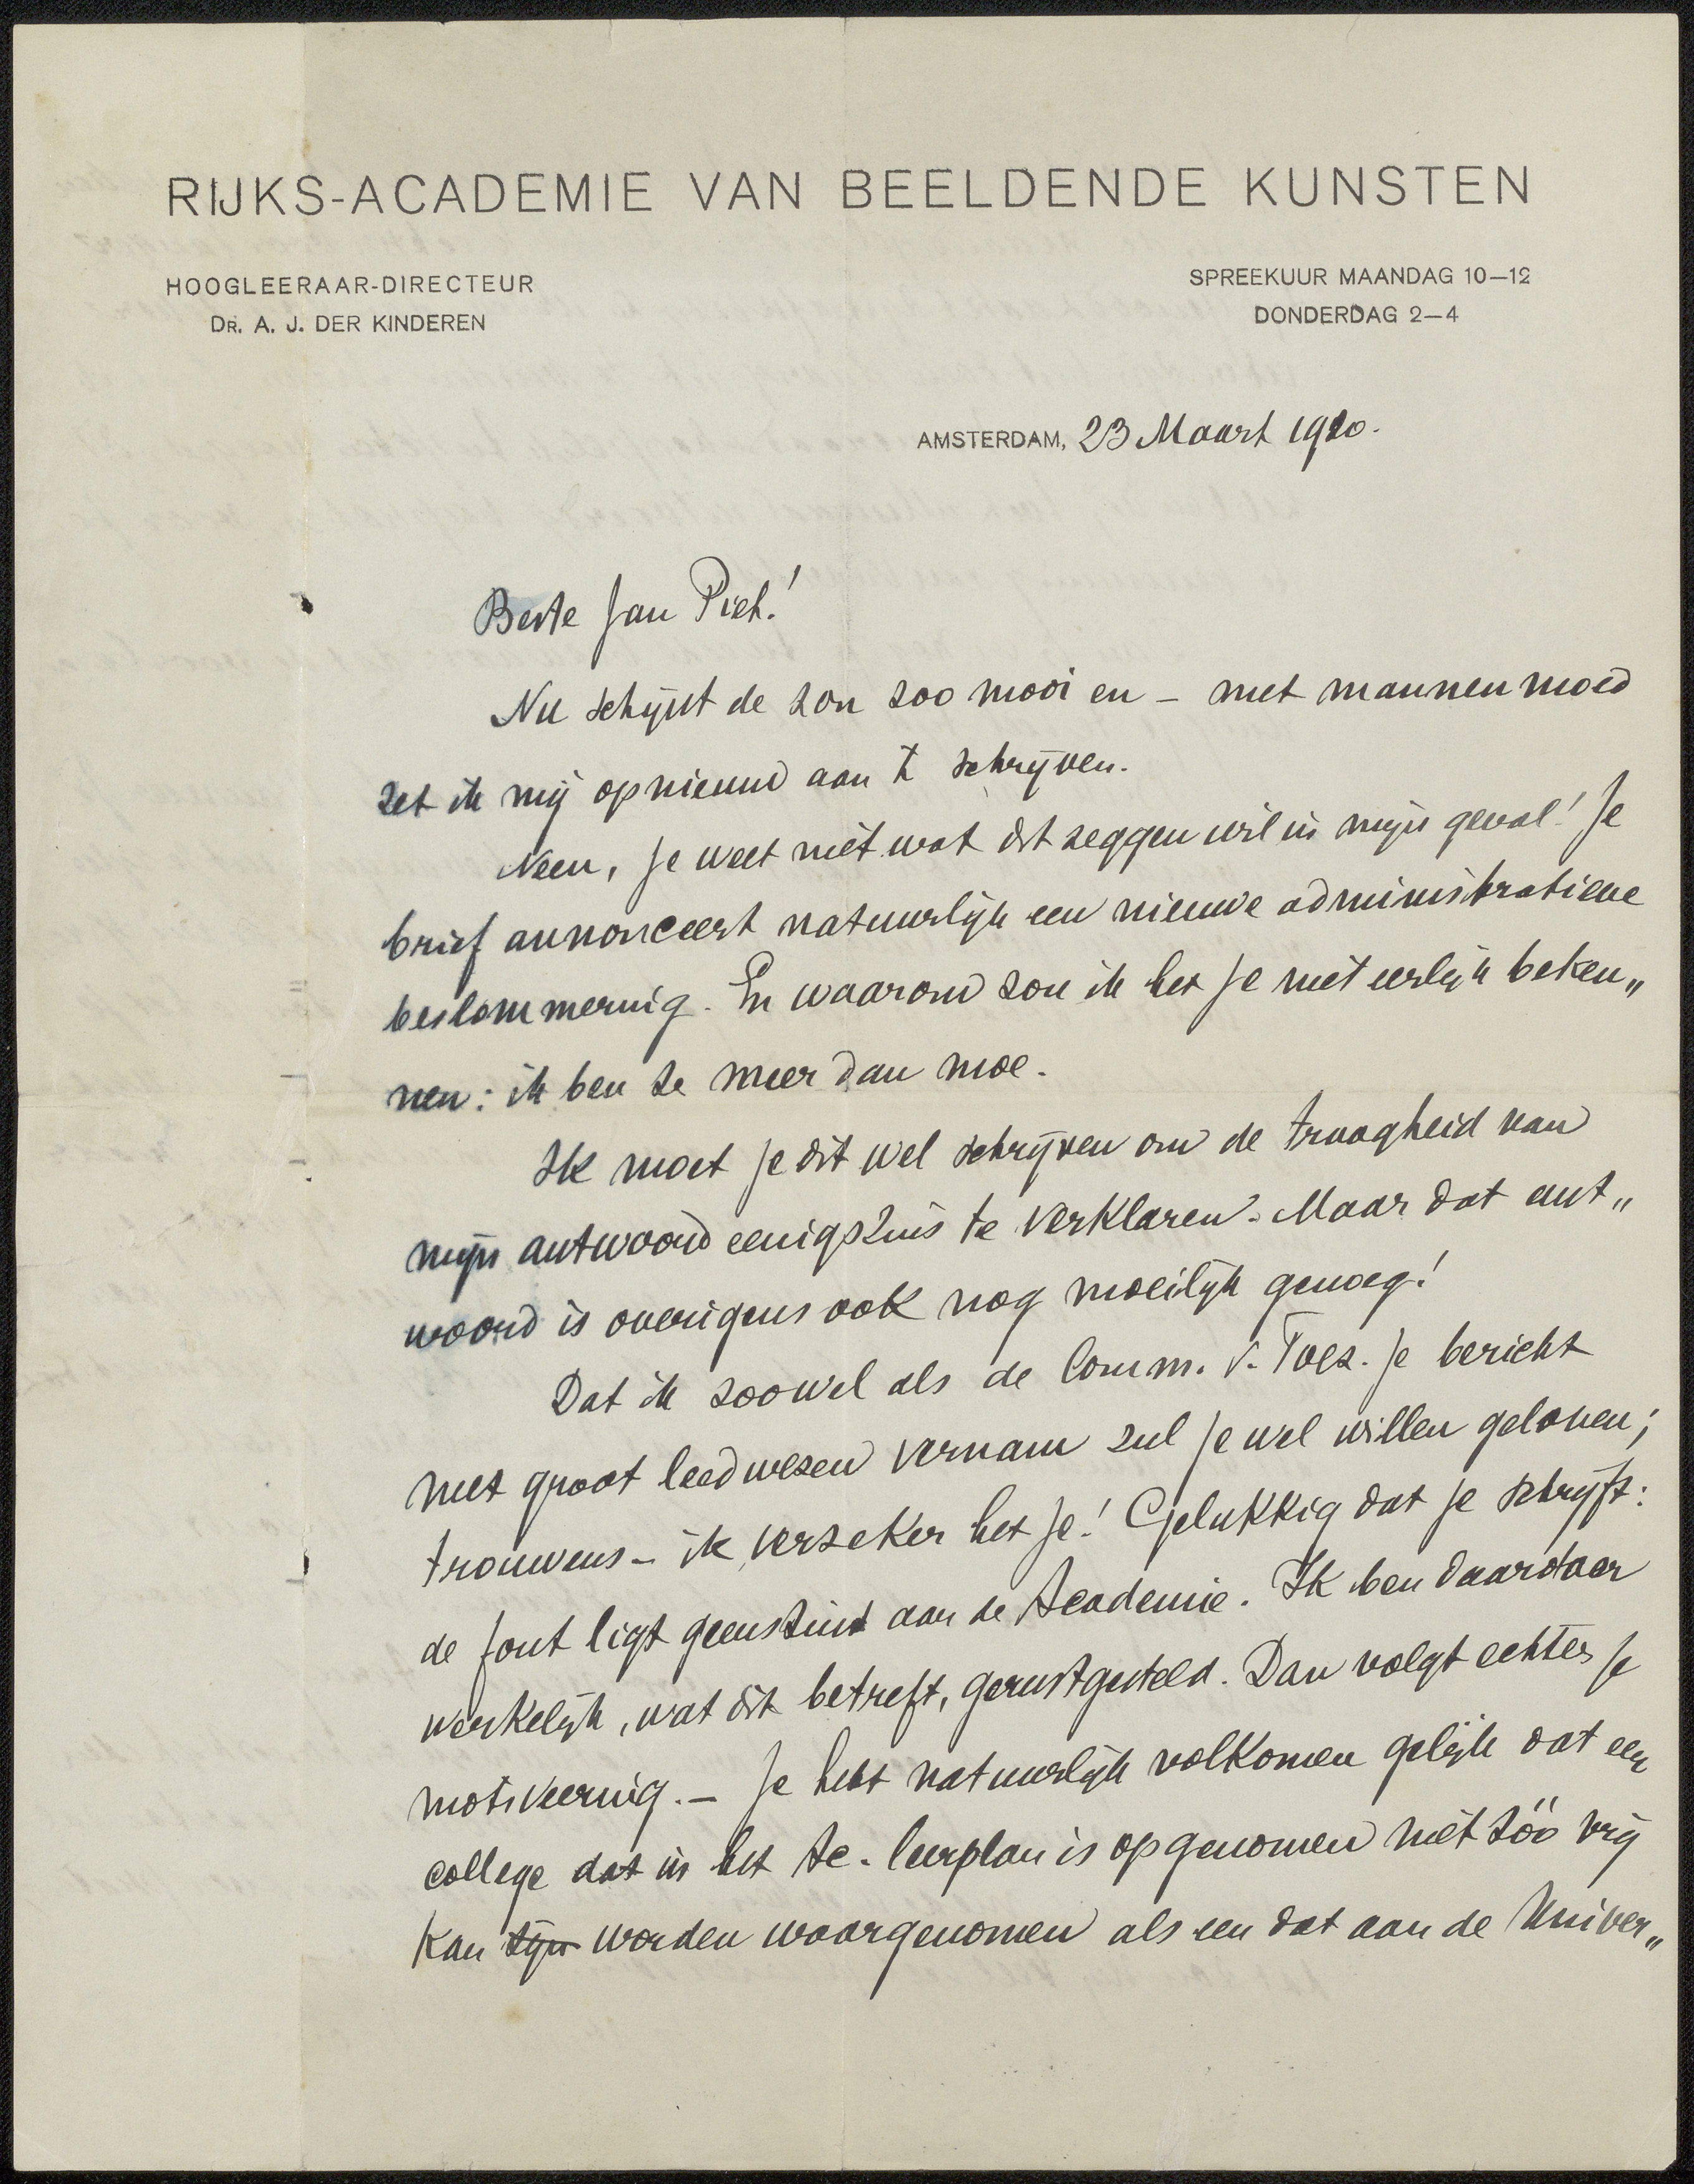 RIJKS-ACADEMIE VAN BEELDENDE KUNSTEN
HOOGLEERAAR-DIRECTEUR
DR. A. J. DER KINDEREN
SPREEKUUR MAANDAG 10—12
DONDERDAG 2—4
AMSTERDAM, 23 Maart 1920.
Beste Jan Piet!
Nu schijnt de zon zoo mooi en – met mannenmoed
zet ik mij opnieuw aan 't schrijven.
Neen, je weet niet wat dit zeggen wil in mijn geval! Je
brief annonceert natuurlijk een nieuwe administratieve
beslommering. En waarom zou ik het je niet eerlijk beken„
nen: ik ben ze meer dan moe.
Ik moet je dit wel schrijven om de traagheid van
mijn antwoord eenigszins te verklaren. Maar dat ant„
woord is overigens ook nog moeilijk genoeg!
Dat ik zoowel als de Comm. v. Toez. je bericht
met groot leedwezen vernam zul je wel willen gelooven;
trouwens – ik verzeker het je! Gelukkig dat je schrijft:
de fout ligt geenszins aan de Academie. Ik ben daardoor
werkelijk, wat dit betreft, gerustgesteld. Dan volgt echter je
motiveering. – Je hebt natuurlijk volkomen gelijk dat een
college dat in het Ac. leerplan is opgenomen niet zóó vrij
kan zijn worden waargenomen als een dat aan de Univer„